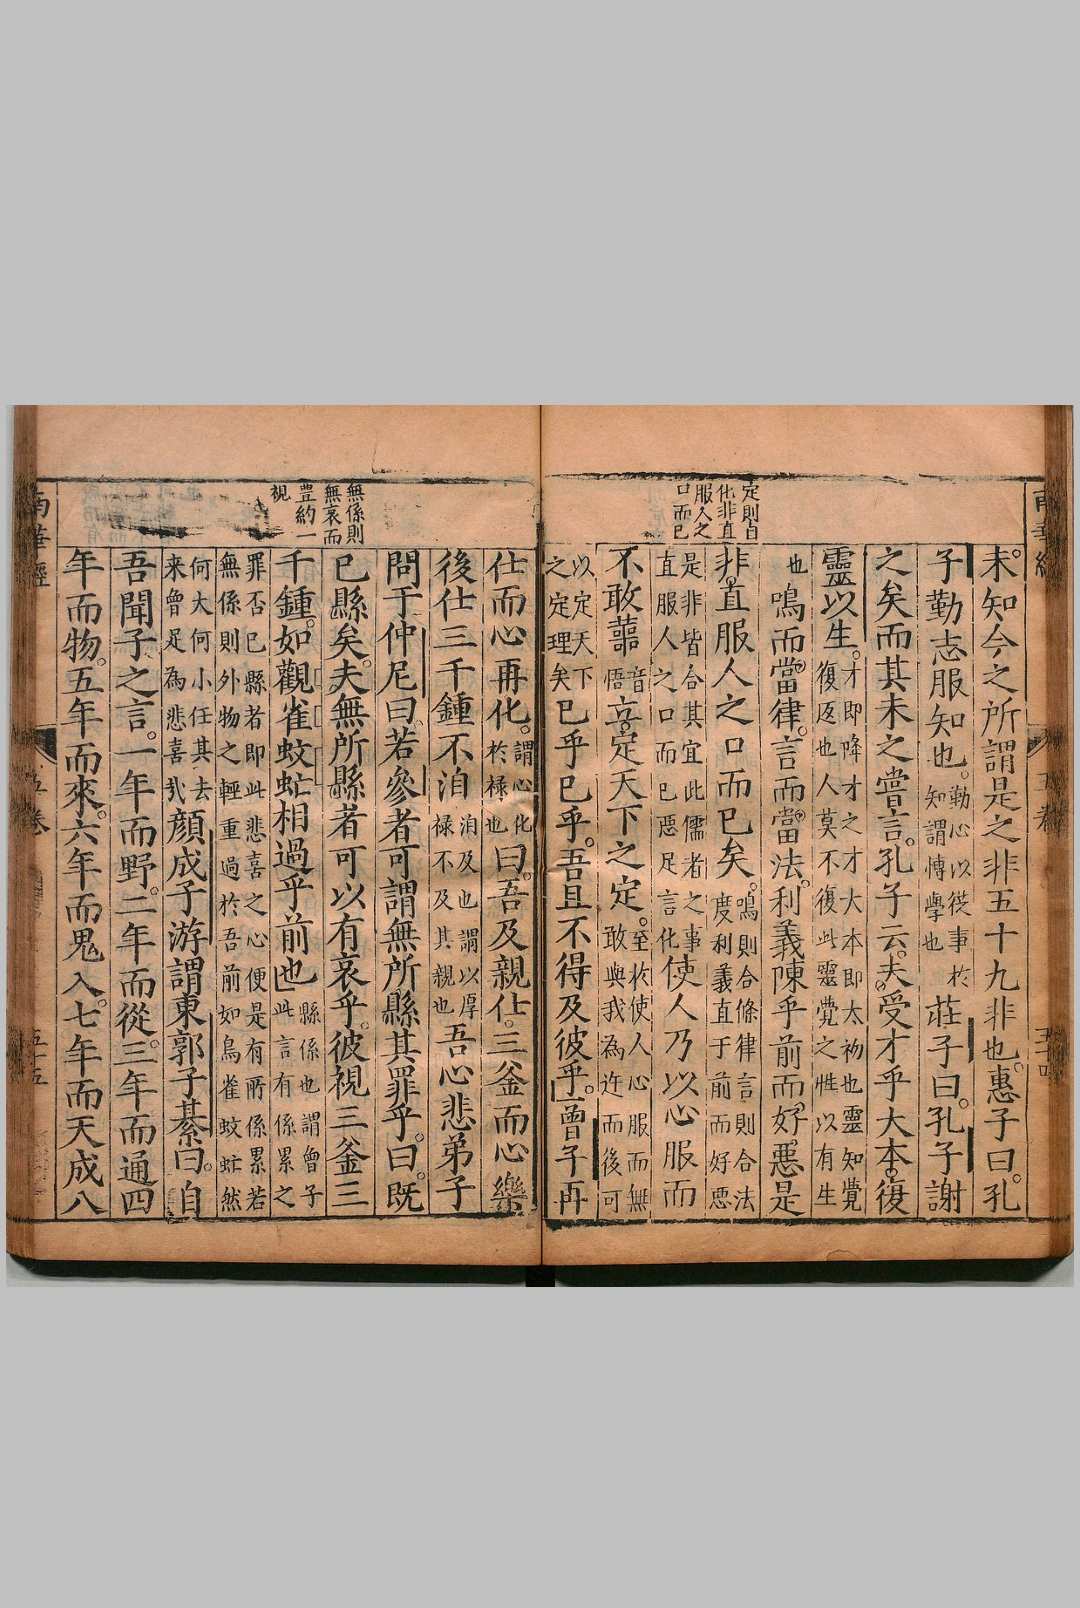 南華經
五卷
五十四
定則自
化非直
服人之
口而已
未知今之所謂是之非五十九非也惠子曰孔
子勤志服知也勤心以從事於知謂博學也莊子曰孔子謝
之矣而其未之嘗言孔子云夫受才乎大本復
靈以生才即降才之才大本即太初也靈知覺復返也人莫不復此靈覺之性以有生
也鳴而當律言而當法利義陳乎前而好惡是
非直服人之口而已矣鳴則合條律言則合法度利義直于前而好惡
是非皆合其宜此儒者之事
直服人之口而已惡足言化使人乃以心服而
不敢蘁音悟立定天下之定至於使人心服而無敢與我為迕而後可
以定天下之定理矣已乎已乎吾且不得及彼乎曾子再
仕而心再化謂心化於祿也曰吾及親仕三釜而心樂
後仕三千鍾不洎洎及也謂以厚祿不及其親也吾心悲弟子
問于仲尼曰若參者可謂無所縣其罪乎曰既
已縣矣夫無所縣者可以有哀乎彼視三釜三
千鍾如觀雀蚊虻相過乎前也縣係也謂曾子此言有係累之
罪否已縣者即此悲喜之心便是有所係累若
無係則外物之輕重過於吾前如鳥雀蚊虻然
何大何小任其去来曾足為悲喜哉顏成子游謂東郭子綦曰自
吾聞子之言一年而野二年而從三年而通四
年而物五年而來六年而鬼入七年而天成八
無係則
無哀而
豊約一
視
南華經
五卷
五十五